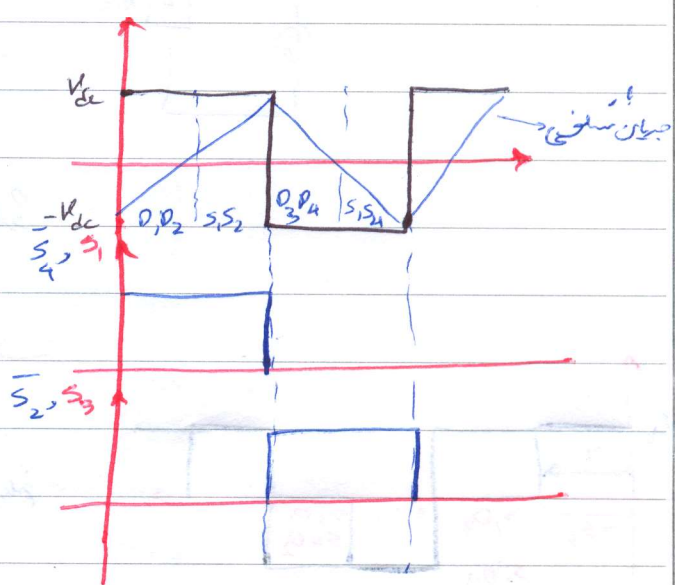 V_dc
جریان سلفی
-V_dc
D₁D₂ S₁S₂ D₃D₄ S₁S₄
S̄₄, S₁
S̄₂, S₃